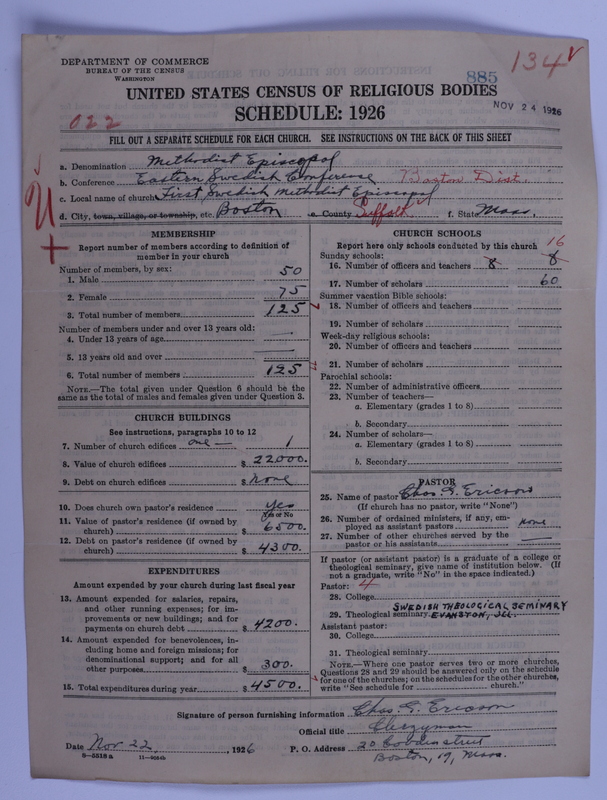 DEPARTMENT OF COMMERCE
BUREAU OF THE CENSUS
WASHINGTON
885
134
UNITED STATES CENSUS OF RELIGIOUS BODIES
SCHEDULE: 1926
NOV 24 1926
022
FILL OUT A SEPARATE SCHEDULE FOR EACH CHURCH. SEE INSTRUCTIONS ON THE BACK OF THIS SHEET
a. Denomination Methodist Episcopal
b. Conference Eastern Swedish Conference Boston Dist.
c. Local name of church First Swedish Methodist Episcopal
d. City, town, village, or township, etc. Boston e. County Suffolk f. State Mass.
MEMBERSHIP
Report number of members according to definition of
member in your church
Number of members, by sex:
1. Male 50
2. Female 75
3. Total number of members 125
Number of members under and over 13 years old:
4. Under 13 years of age
5. 13 years old and over
6. Total number of members 125
NOTE.—The total given under Question 6 should be the
same as the total of males and females given under Question 3.
CHURCH BUILDINGS
See instructions, paragraphs 10 to 12
7. Number of church edifices one — 1
8. Value of church edifices $ 22000.
9. Debt on church edifices $ None
10. Does church own pastor's residence yes
Yes or No
11. Value of pastor's residence (if owned by
church) $ 6500.
12. Debt on pastor's residence (if owned by
church) $ 4300.
EXPENDITURES
Amount expended by your church during last fiscal year
13. Amount expended for salaries, repairs,
and other running expenses; for im-
provements or new buildings; and for
payments on church debt $ 4200.
14. Amount expended for benevolences, in-
cluding home and foreign missions; for
denominational support; and for all
other purposes $ 300.
15. Total expenditures during year $ 4500.
CHURCH SCHOOLS
Report here only schools conducted by this church 16
Sunday schools:
16. Number of officers and teachers 8 8
17. Number of scholars 60
Summer vacation Bible schools:
18. Number of officers and teachers
19. Number of scholars
Week-day religious schools:
20. Number of officers and teachers
21. Number of scholars
Parochial schools:
22. Number of administrative officers
23. Number of teachers—
a. Elementary (grades 1 to 8)
b. Secondary
24. Number of scholars—
a. Elementary (grades 1 to 8)
b. Secondary
PASTOR
25. Name of pastor Chas. G. Ericson
(If church has no pastor, write "None")
26. Number of ordained ministers, if any, em-
ployed as assistant pastors None
27. Number of other churches served by the
pastor or his assistants
If pastor (or assistant pastor) is a graduate of a college or
theological seminary, give name of institution below. (If
not a graduate, write "No" in the space indicated.)
Pastor: 4
28. College
SWEDISH THEOLOGICAL SEMINARY
29. Theological seminary EVANSTON, ILL.
Assistant pastor:
30. College
31. Theological seminary
NOTE.—Where one pastor serves two or more churches,
Questions 28 and 29 should be answered only on the schedule
for one of the churches; on the schedules for the other churches,
write "See schedule for church."
Signature of person furnishing information Chas. G. Ericson
Official title Clergyman
Date Nov 22, 1926 P. O. Address 20 Cobden street
Boston, 19, Mass.
8—5518 a 11—9064b